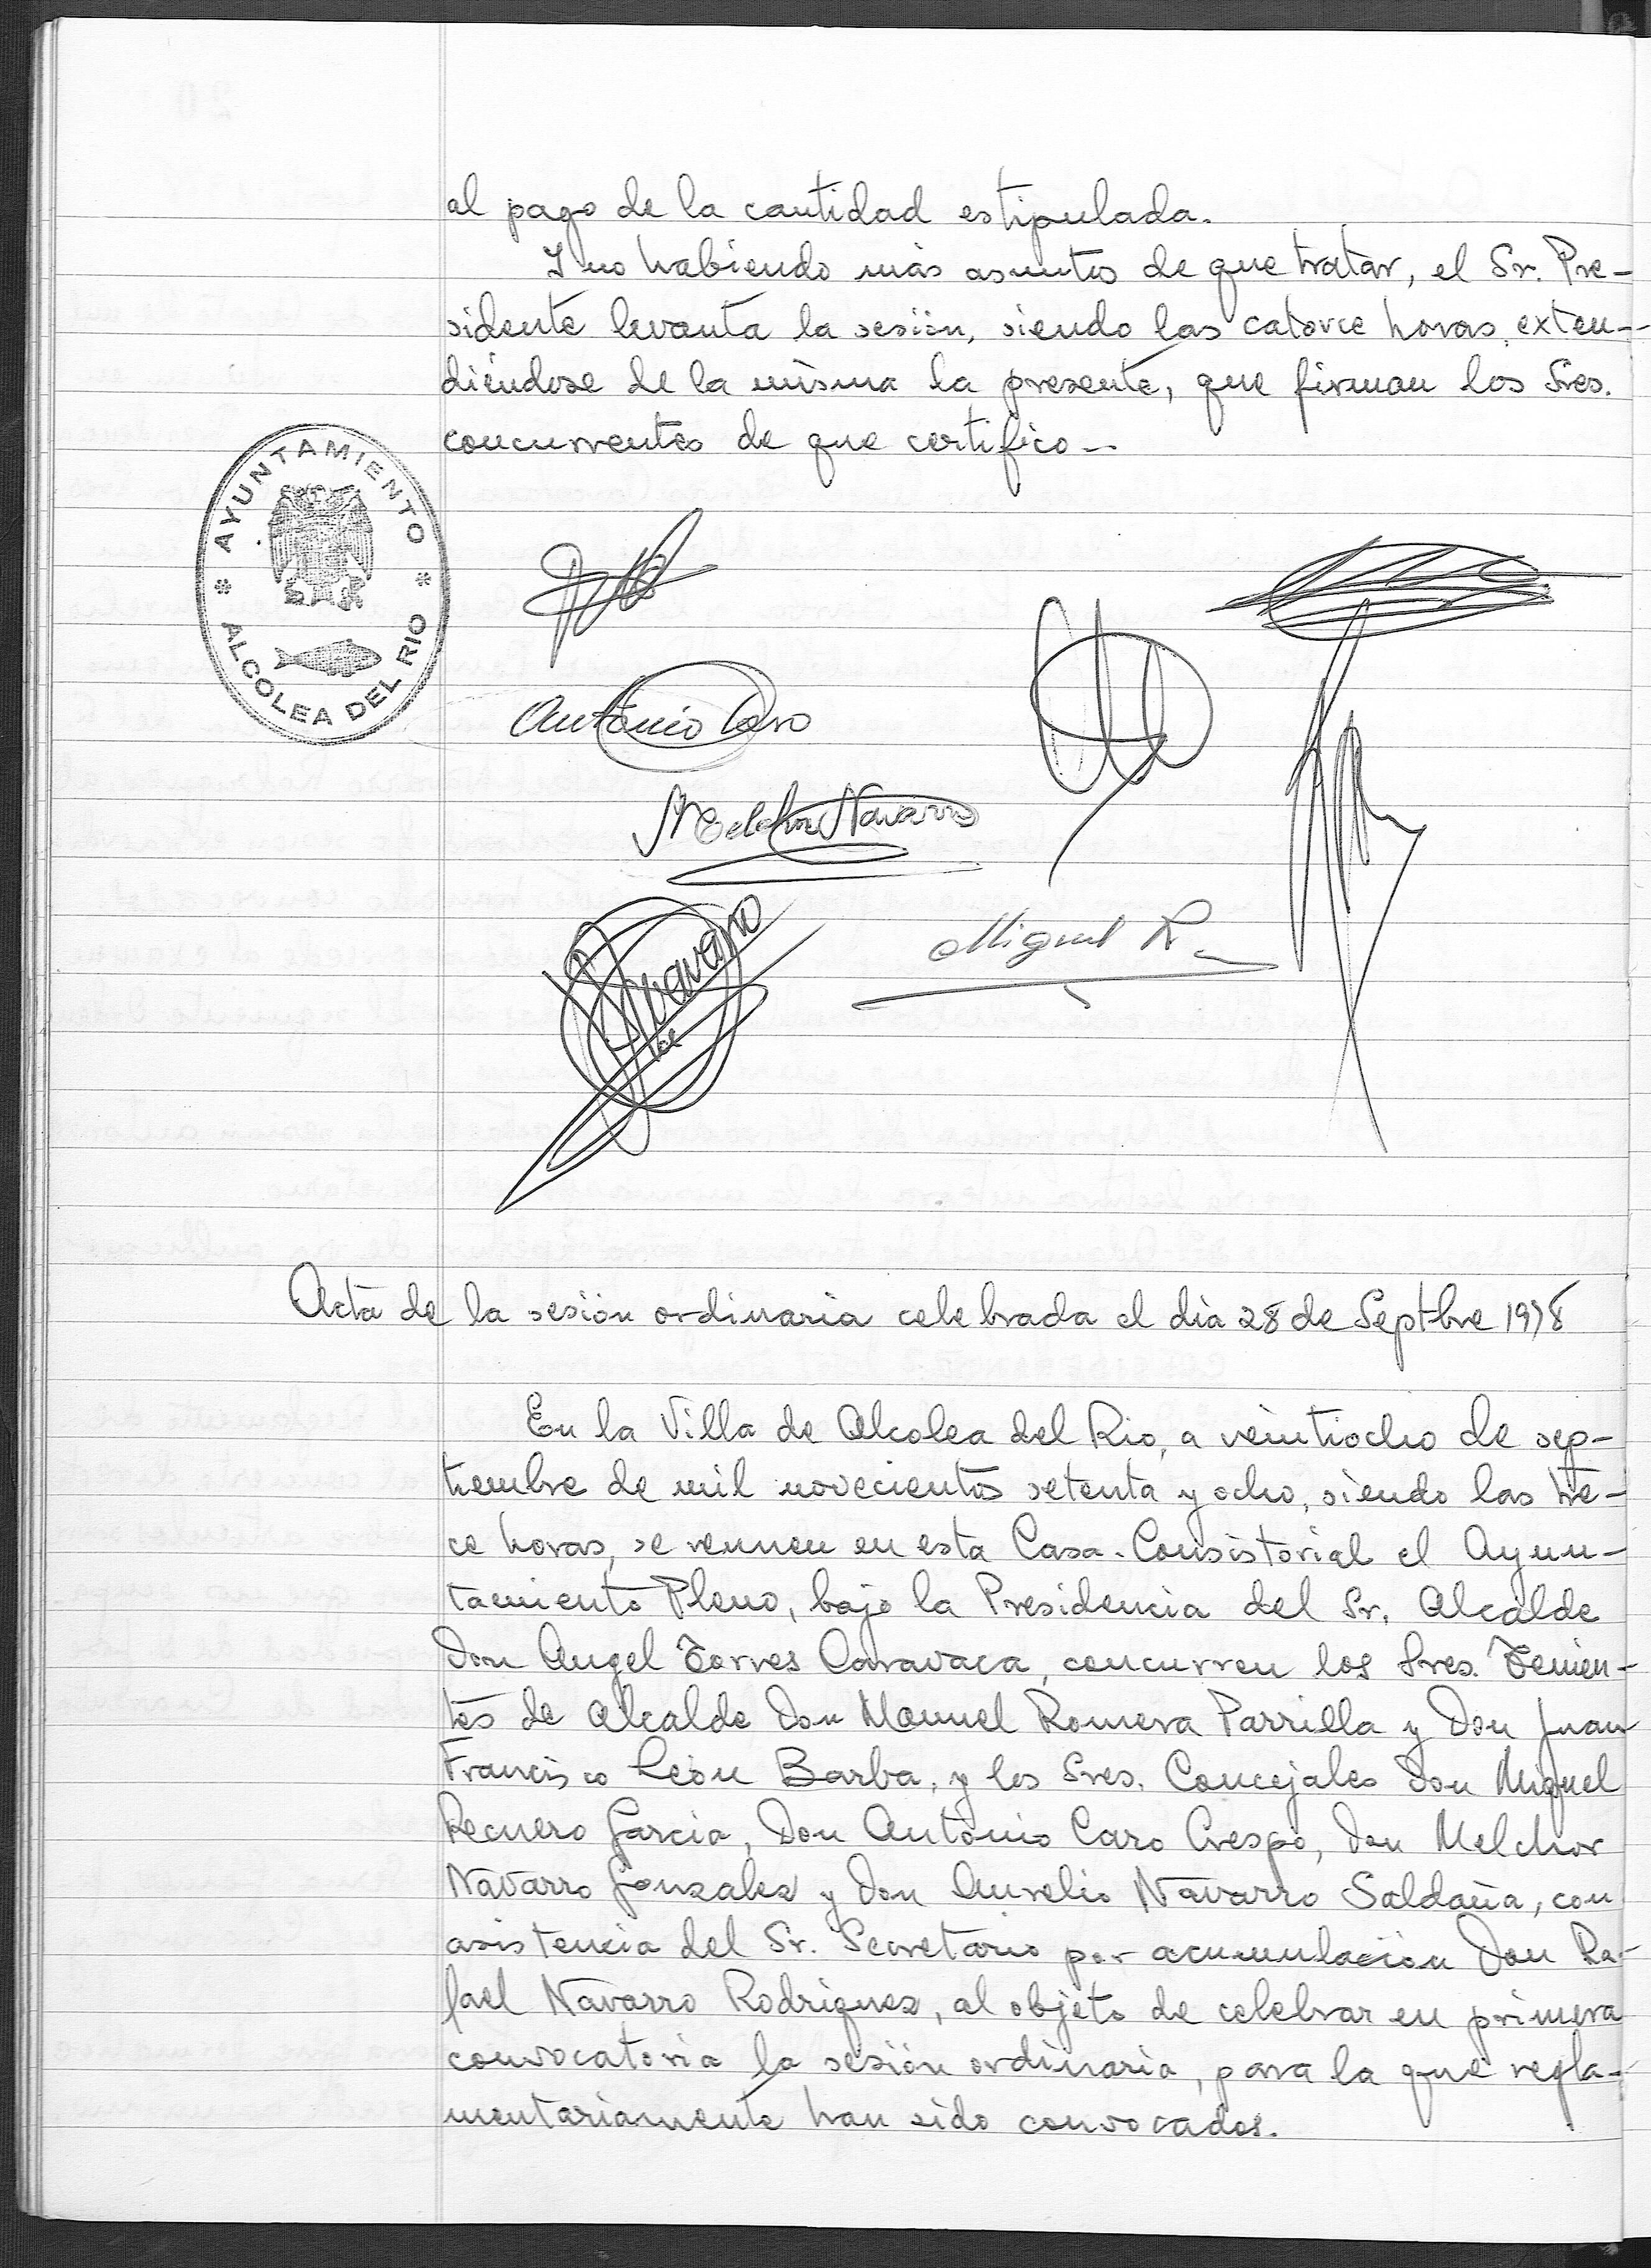 al pago de la cantidad estipulada.
Y no habiendo más asuntos de que tratar, el Sr. Pre-
sidente levanta la sesión, siendo las catorce horas, exten-
diéndose de la misma la presente, que firman los Sres.
concurrentes de que certifico-
AYUNTAMIENTO
ALCOLEA DEL RIO
Antonio Caro
Melchor Navarro
Navarro
Miguel R.
Acta de la sesión ordinaria celebrada el día 28 de Septbre 1978
En la Villa de Alcolea del Rio, a veintiocho de sep-
tiembre de mil novecientos setenta y ocho, siendo las tre-
ce horas, se reunen en esta Casa-Consistorial el Ayun-
tamiento Pleno, bajo la Presidencia del Sr. Alcalde
Don Angel Torres Caravaca, concurren los Sres. Tenien-
tes de Alcalde Don Manuel Romera Parrilla y Don Juan
Francisco León Barba, y los Sres. Concejales Don Miguel
Recuero Garcia, Don Antonio Caro Crespo, Don Melchor
Navarro Gonzalez y Don Aurelio Navarro Saldaña, con
asistencia del Sr. Secretario por acumulación Don Ra-
fael Navarro Rodriguez, al objeto de celebrar en primera
convocatoria la sesión ordinaria, para la que regla-
mentariamente han sido convocados.